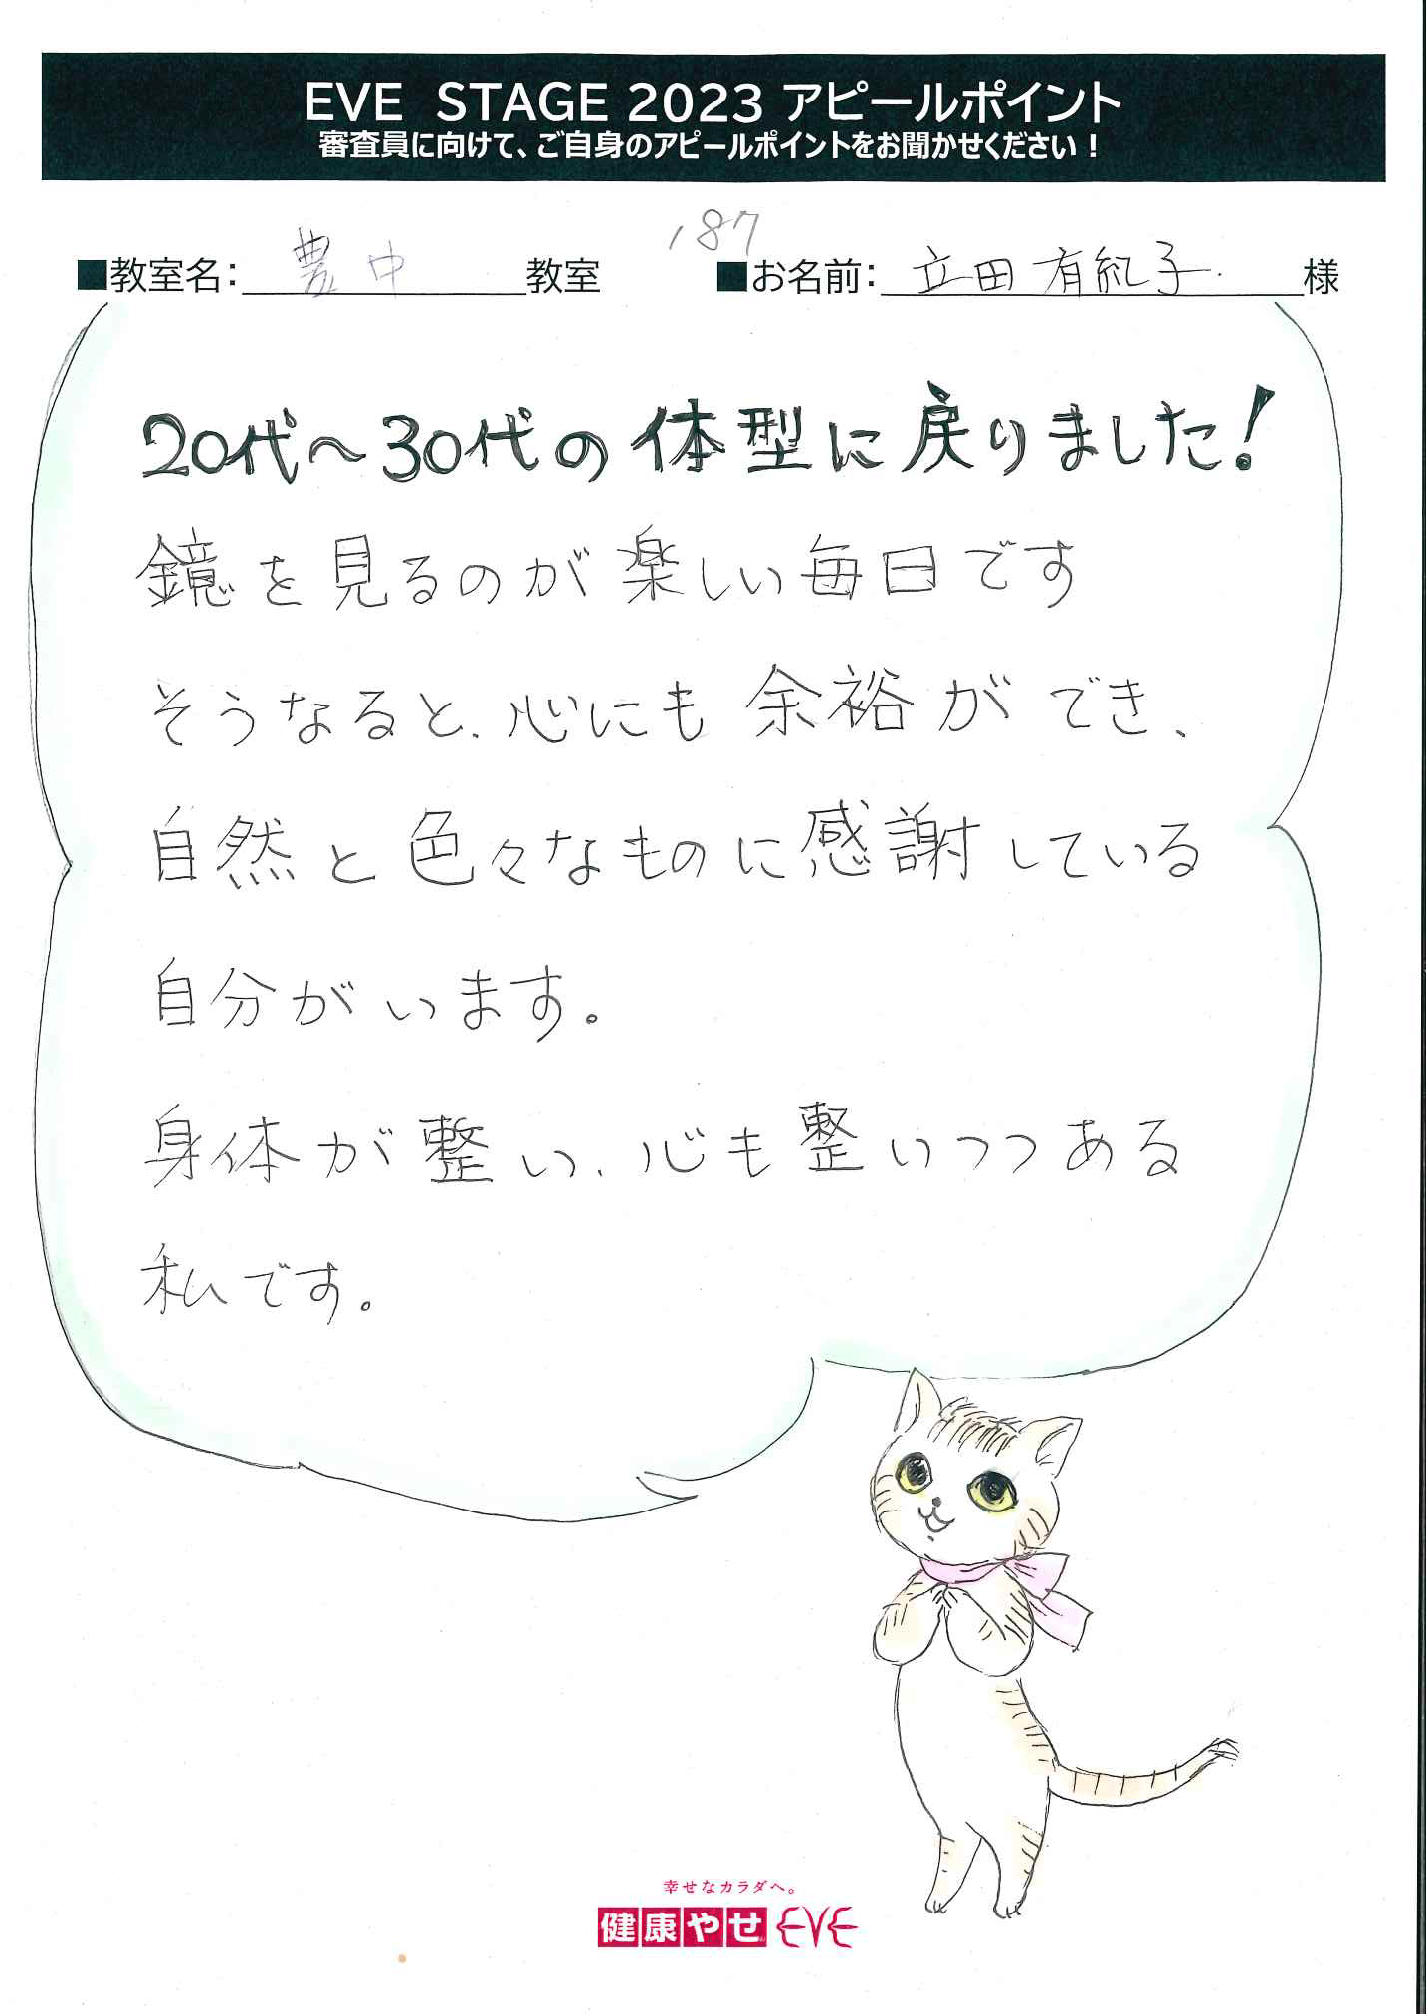 EVE STAGE 2023 アピールポイント
審査員に向けて、ご自身のアピールポイントをお聞かせください！
187
■教室名：豊中教室 ■お名前：立田有紀子様
20代～30代の体型に戻りました！
鏡を見るのが楽しい毎日です
そうなると、心にも余裕ができ、
自然と色々なものに感謝している
自分がいます。
身体が整い、心も整いつつある
私です。
幸せなカラダへ。
健康やせ EVE